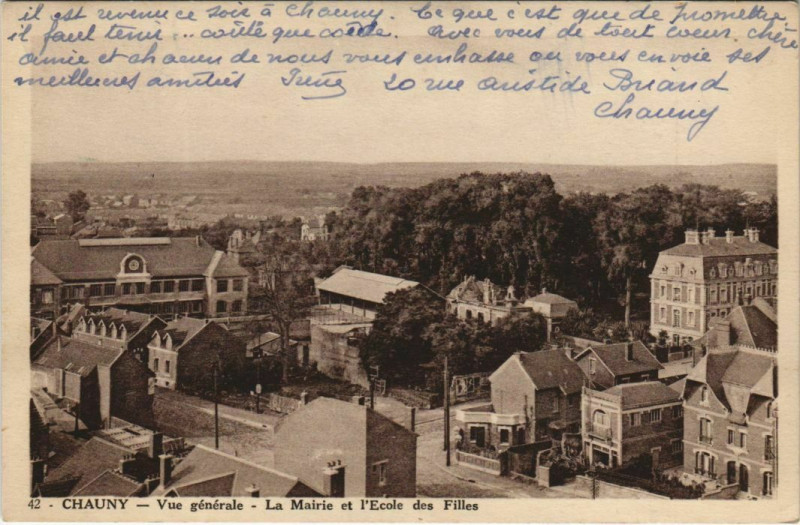 il est revenue ce soir à Chauny. Ce que c'est que de promettre
il faut tenir .. coûte que coûte. avec vous de tout coeur, chère
amie et chacun de nous vous embrasse ou vous envoie ses
meilleures amitiés Irène 20 rue aristide Briand
Chauny
42 - CHAUNY — Vue générale - La Mairie et l'Ecole des Filles